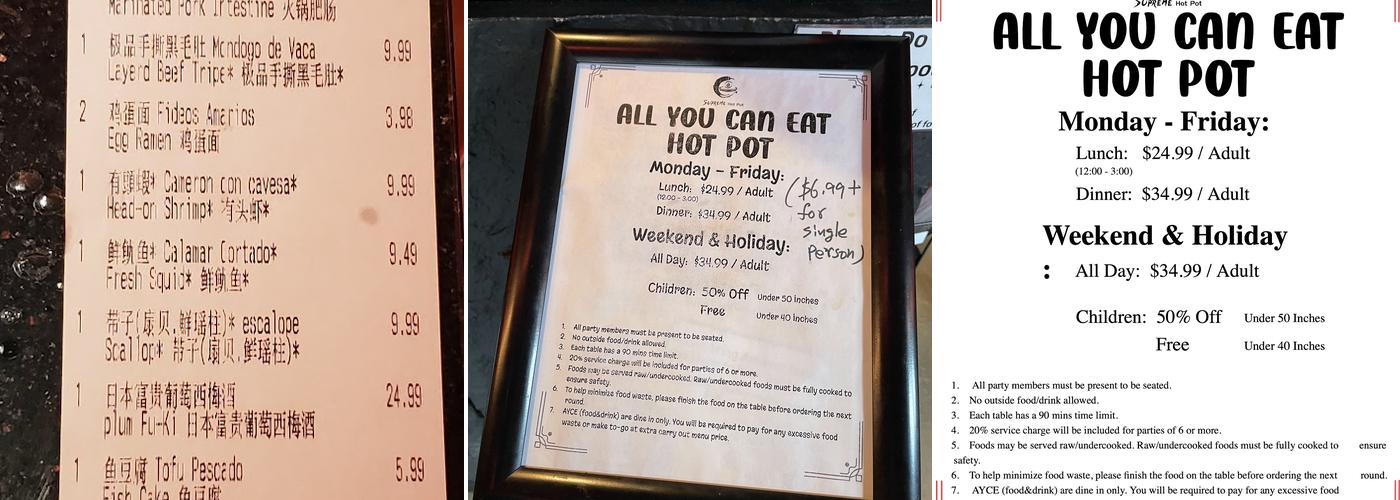 Marinated Pork Intestine 火锅肥肠
1 极品手撕黑毛肚 Mondogo de Vaca 9.99
Layerd Beef Tripe* 极品手撕黑毛肚*
2 鸡蛋面 Fideos Amarios 3.98
Egg Ramen 鸡蛋面
1 有頭蝦* Cameron con cavesa* 9.99
Head-on Shrimp* 有头虾*
1 鲜鱿鱼* Calamar Cortado* 9.49
Fresh Squid* 鲜鱿鱼*
1 带子(扇贝,鲜瑶柱)* escalope 9.99
Scallop* 带子(扇贝,鲜瑶柱)*
1 日本富贵葡萄西梅酒 24.99
plum Fu-Ki 日本富贵葡萄西梅酒
1 鱼豆腐 Tofu Pescado 5.99
Fish Cake 鱼豆腐
SUPREME Hot Pot
ALL YOU CAN EAT
HOT POT
Monday - Friday:
Lunch: $24.99 / Adult
(12:00 - 3:00)
Dinner: $34.99 / Adult
($6.99+
for
single
person)
Weekend & Holiday:
All Day: $34.99 / Adult
Children: 50% Off Under 50 Inches
Free Under 40 Inches
1. All party members must be present to be seated.
2. No outside food/drink allowed.
3. Each table has a 90 mins time limit.
4. 20% service charge will be included for parties of 6 or more.
5. Foods may be served raw/undercooked. Raw/undercooked foods must be fully cooked to
ensure safety.
6. To help minimize food waste, please finish the food on the table before ordering the next
round.
7. AYCE (food&drink) are dine in only. You will be required to pay for any excessive food
waste or make to-go at extra carry out menu price.
SUPREME Hot Pot
ALL YOU CAN EAT
HOT POT
Monday - Friday:
Lunch: $24.99 / Adult
(12:00 - 3:00)
Dinner: $34.99 / Adult
Weekend & Holiday
: All Day: $34.99 / Adult
Children: 50% Off Under 50 Inches
Free Under 40 Inches
1. All party members must be present to be seated.
2. No outside food/drink allowed.
3. Each table has a 90 mins time limit.
4. 20% service charge will be included for parties of 6 or more.
5. Foods may be served raw/undercooked. Raw/undercooked foods must be fully cooked to ensure
safety.
6. To help minimize food waste, please finish the food on the table before ordering the next round.
7. AYCE (food&drink) are dine in only. You will be required to pay for any excessive food